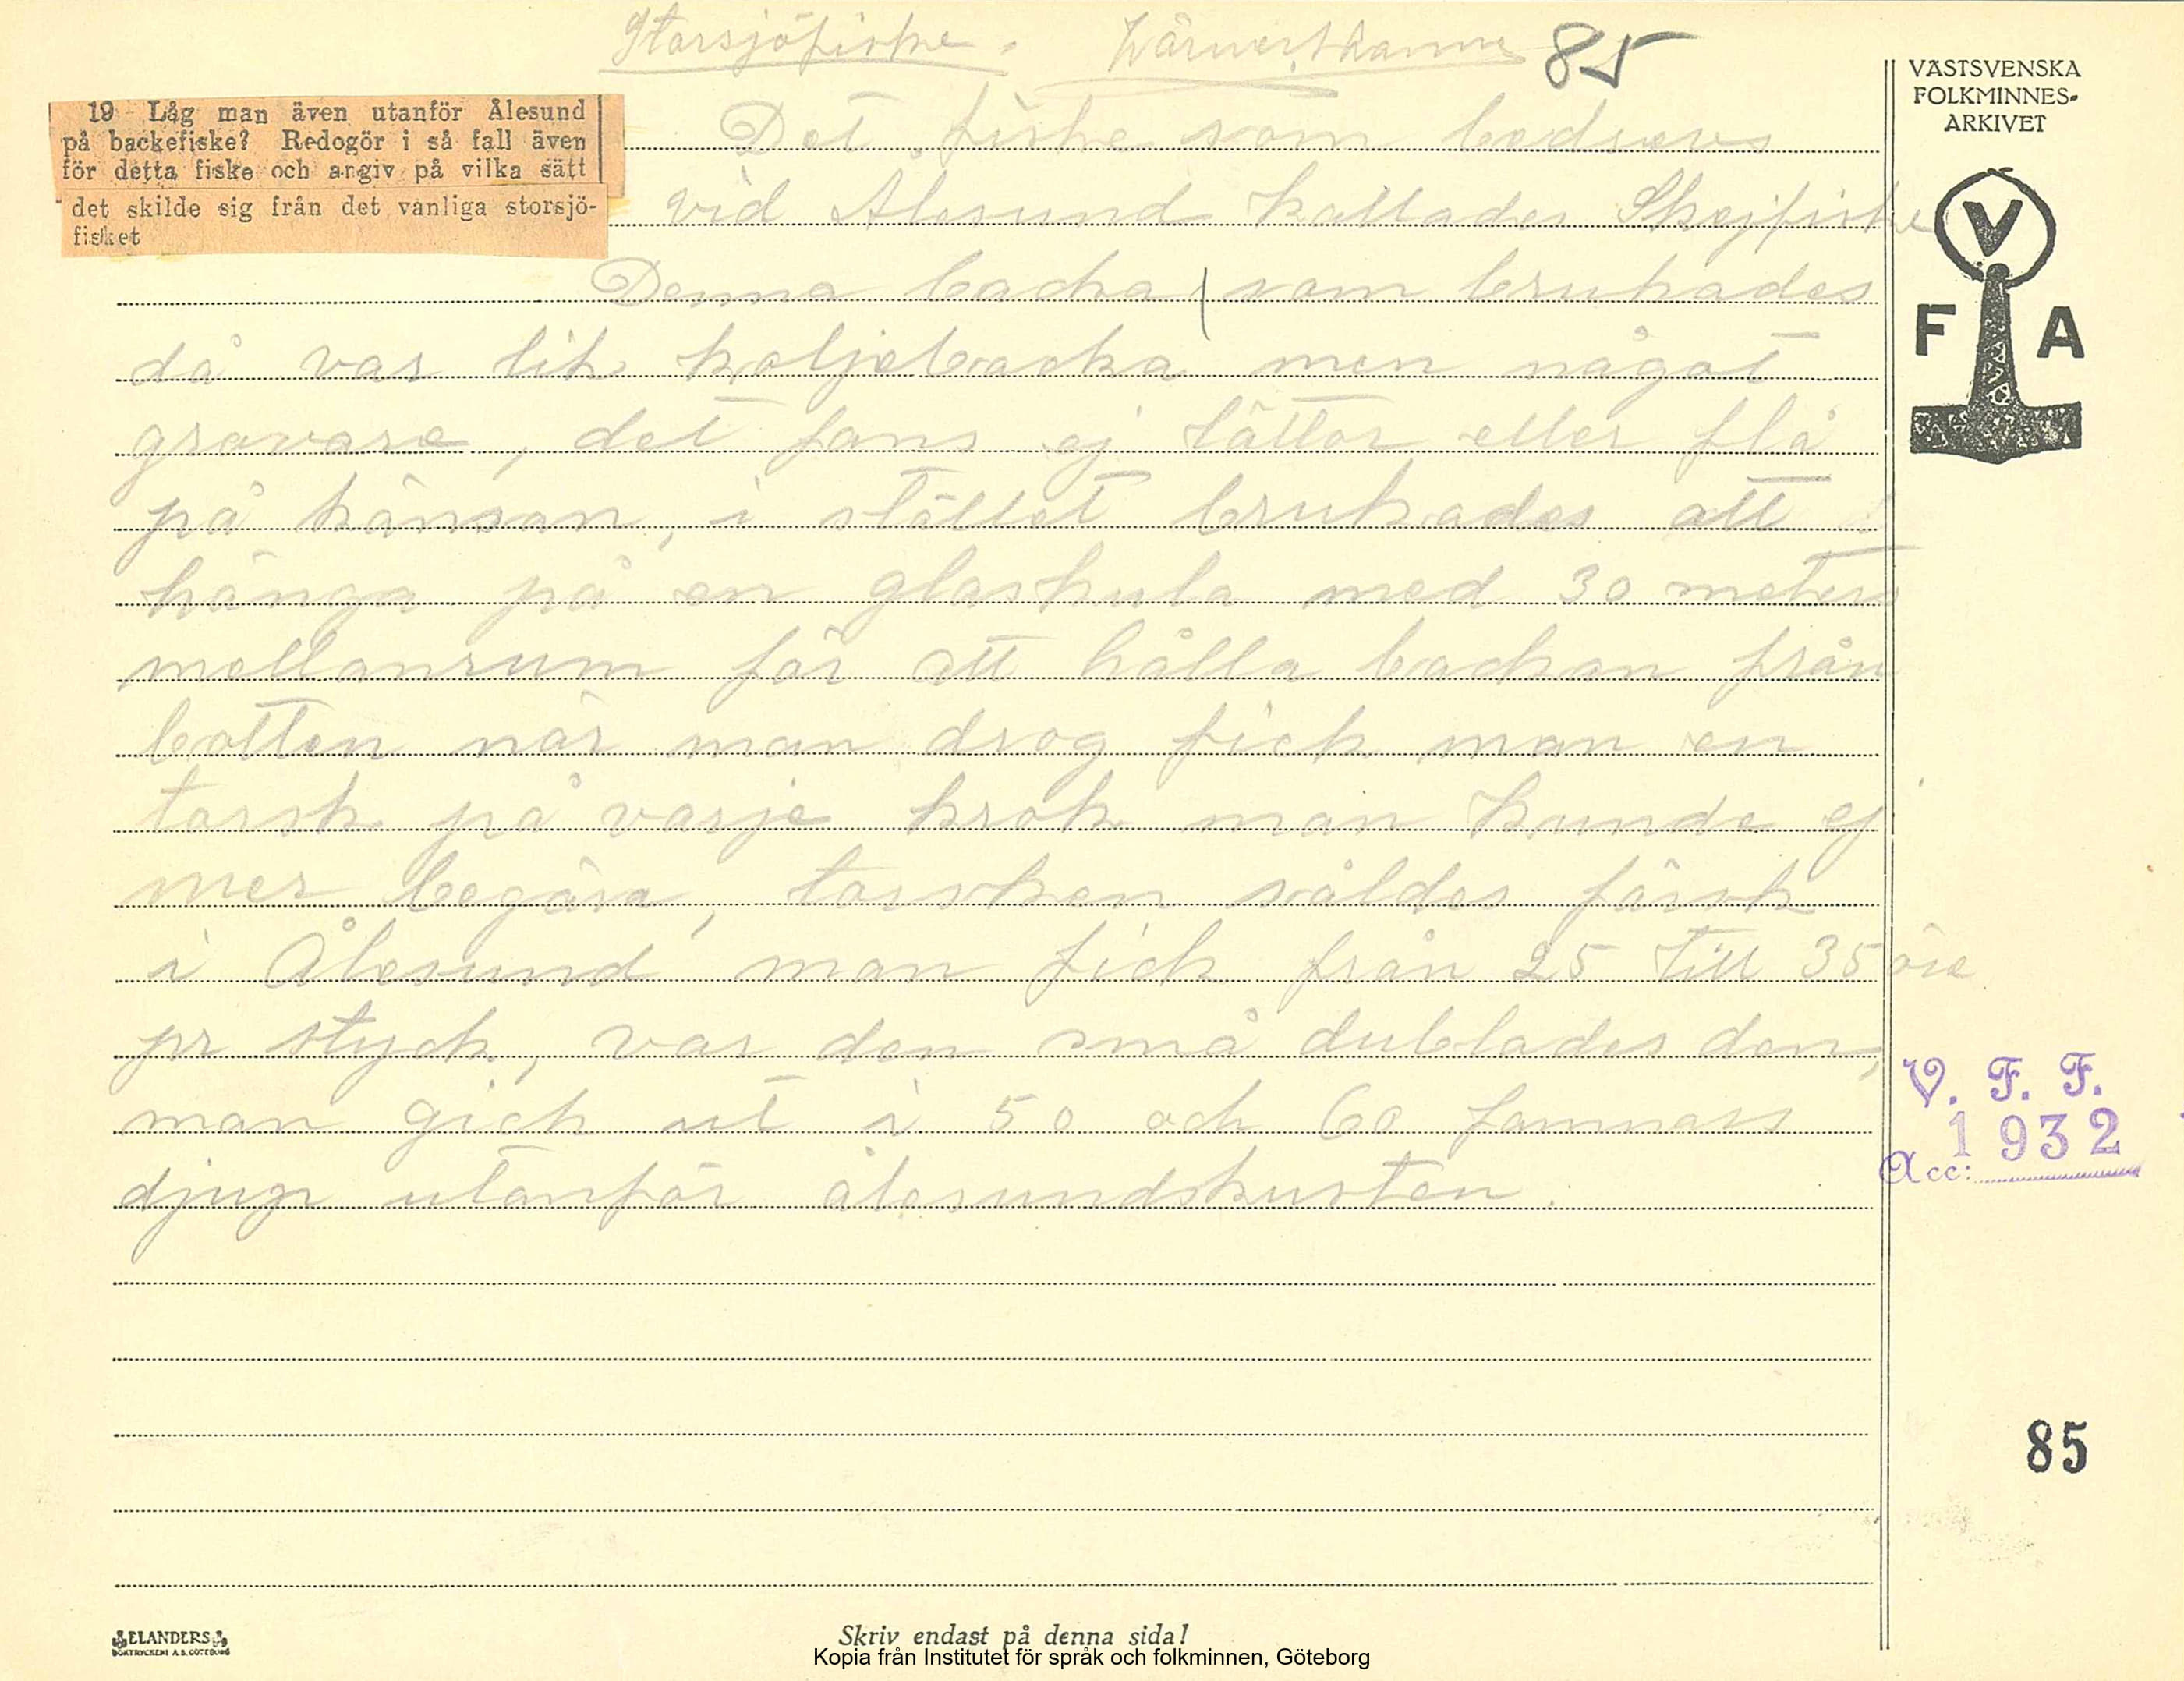 Storsjöfiske. 85
19 Låg man även utanför Ålesund
på backefiske? Redogör i så fall även
för detta fiske och angiv på vilka sätt
det skilde sig från det vanliga storsjö-
fisket
Det fiske som bedrevs
vid Alesund kallades Skejfiske
Denna backa som brukades
då var lik koljebacka men något
gravare, det fans ej tåttor eller flå
på hånsan, i stället brukades att
hänga på en glaskula med 30 meters
mellanrum för att hålla backan från
botten när man drog fick man en
torsk på varje krok man kunde ej
mer begära, torsken såldes färsk
i Ålesund man fick från 25 till 35 öre
pr styck, var den små dublades den,
man gick ut i 50 och 60 famnars
djup utanför ålesundskusten.
VÄSTSVENSKA
FOLKMINNES-
ARKIVET
V
F A
V. F. F.
1932
Acc:
85
ELANDERS
BOKTRYCKERI A.B. GÖTEBORG
Skriv endast på denna sida!
Kopia från Institutet för språk och folkminnen, Göteborg